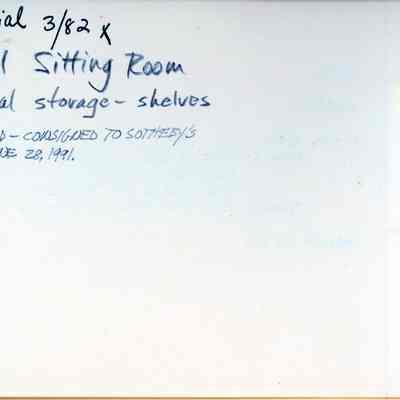 ial 3/82 x
l Sitting Room
al storage - shelves
D - CONSIGNED TO SOTHEBY'S
NE 28, 1991.